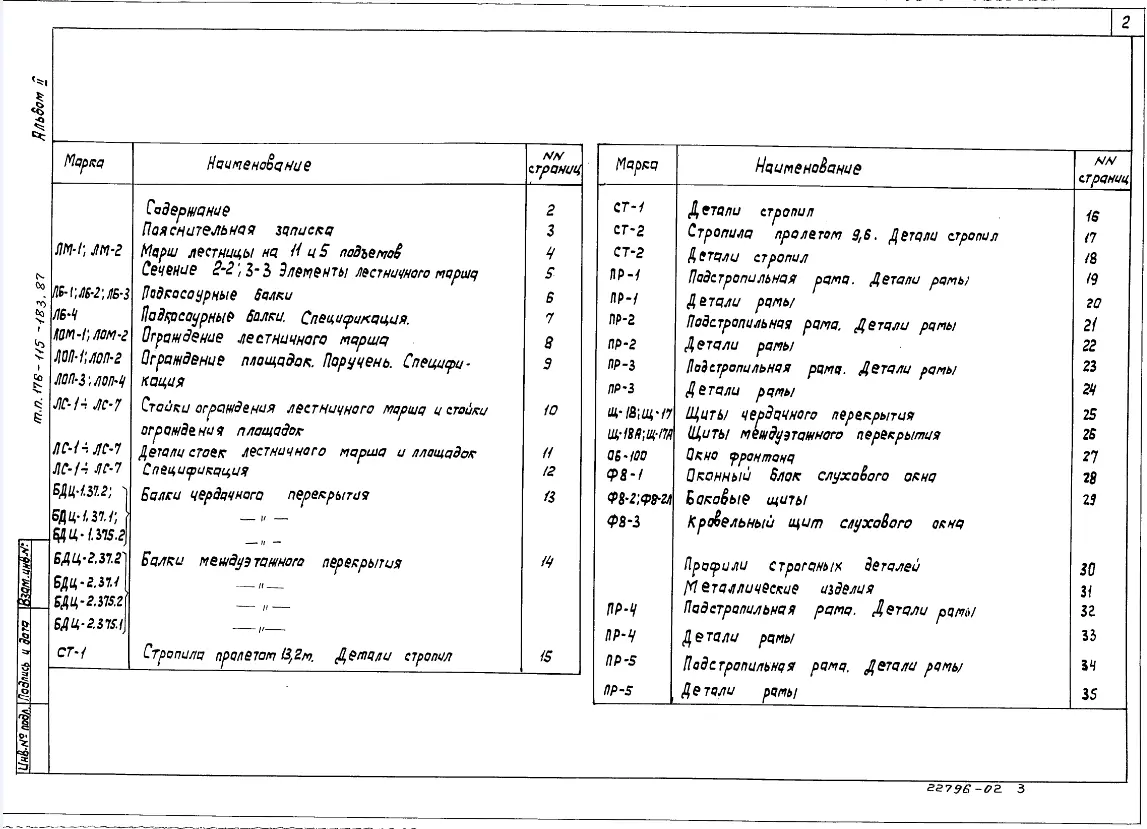 2
Альбом II
т.п. 176-115-183.87
Марка Наименование NN страниц
Содержание 2
Пояснительная записка 3
ЛМ-1; ЛМ-2 Марш лестницы на 11 и 5 подъемов 4
Сечение 2-2; 3-3 Элементы лестничного марша 5
ЛБ-1; ЛБ-2; ЛБ-3 Подкосоурные балки 6
ЛБ-4 Подкосоурные балки. Спецификация. 7
ЛОМ-1; ЛОМ-2 Ограждение лестничного марша 8
ЛОП-1; ЛОП-2 Ограждение площадок. Поручень. Специфи- 9
ЛОП-3; ЛОП-4 кация
ЛС-1÷ЛС-7 Стойки ограждения лестничного марша и стойки 10
ограждения площадок
ЛС-1÷ЛС-7 Детали стоек лестничного марша и площадок 11
ЛС-1÷ЛС-7 Спецификация 12
БДЦ-1.37.2; Балки чердачного перекрытия 13
БДЦ-1.37.1; — " —
БДЦ-1.375.2 — " —
БДЦ-2.37.2 Балки междуэтажного перекрытия 14
БДЦ-2.37.1 — " —
БДЦ-2.375.2 — " —
БДЦ-2.375.1 — " —
СТ-1 Стропила пролетом 13,2м. Детали стропил 15
Марка Наименование NN страниц
СТ-1 Детали стропил 16
СТ-2 Стропила пролетом 9,6. Детали стропил 17
СТ-2 Детали стропил 18
ПР-1 Подстропильная рама. Детали рамы 19
ПР-1 Детали рамы 20
ПР-2 Подстропильная рама. Детали рамы 21
ПР-2 Детали рамы 22
ПР-3 Подстропильная рама. Детали рамы 23
ПР-3 Детали рамы 24
Щ-1В; Щ-17 Щиты чердачного перекрытия 25
Щ-18А; Щ-17А Щиты междуэтажного перекрытия 26
ОБ-100 Окно фронтона 27
ФВ-1 Оконный блок слухового окна 28
ФВ-2; ФВ-2Л Боковые щиты 29
ФВ-3 Кровельный щит слухового окна
Профили строганых деталей 30
Металлические изделия 31
ПР-4 Подстропильная рама. Детали рамы 32
ПР-4 Детали рамы 33
ПР-5 Подстропильная рама. Детали рамы 34
ПР-5 Детали рамы 35
Инв.№ подл. Подпись и дата Взам.инв.№
22796-02 3